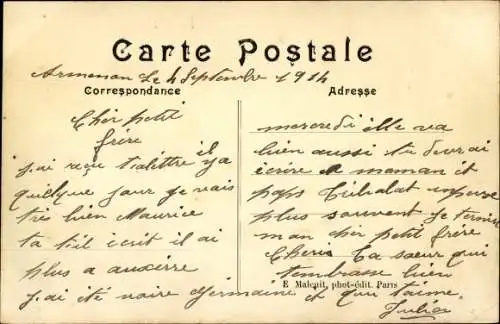 Carte Postale
Armenon Le 4 Septembre 1914
Correspondance
Adresse
Cher petit
frère
j'ai reçu talittre il ya
quelque jour je vais
très bien Maurice
ta til écrit il ai
plus a auxerre
j.ai ite noire Germaine
mercredi elle va
bien aussi tu devrai
écrire a maman et
papa
plus souvent Je termine
mon cher petit frère
Cheris Ta sœur qui
tembrasse bien
E Malcuit, phot-édit. Paris
et qui t'aime.
Julia